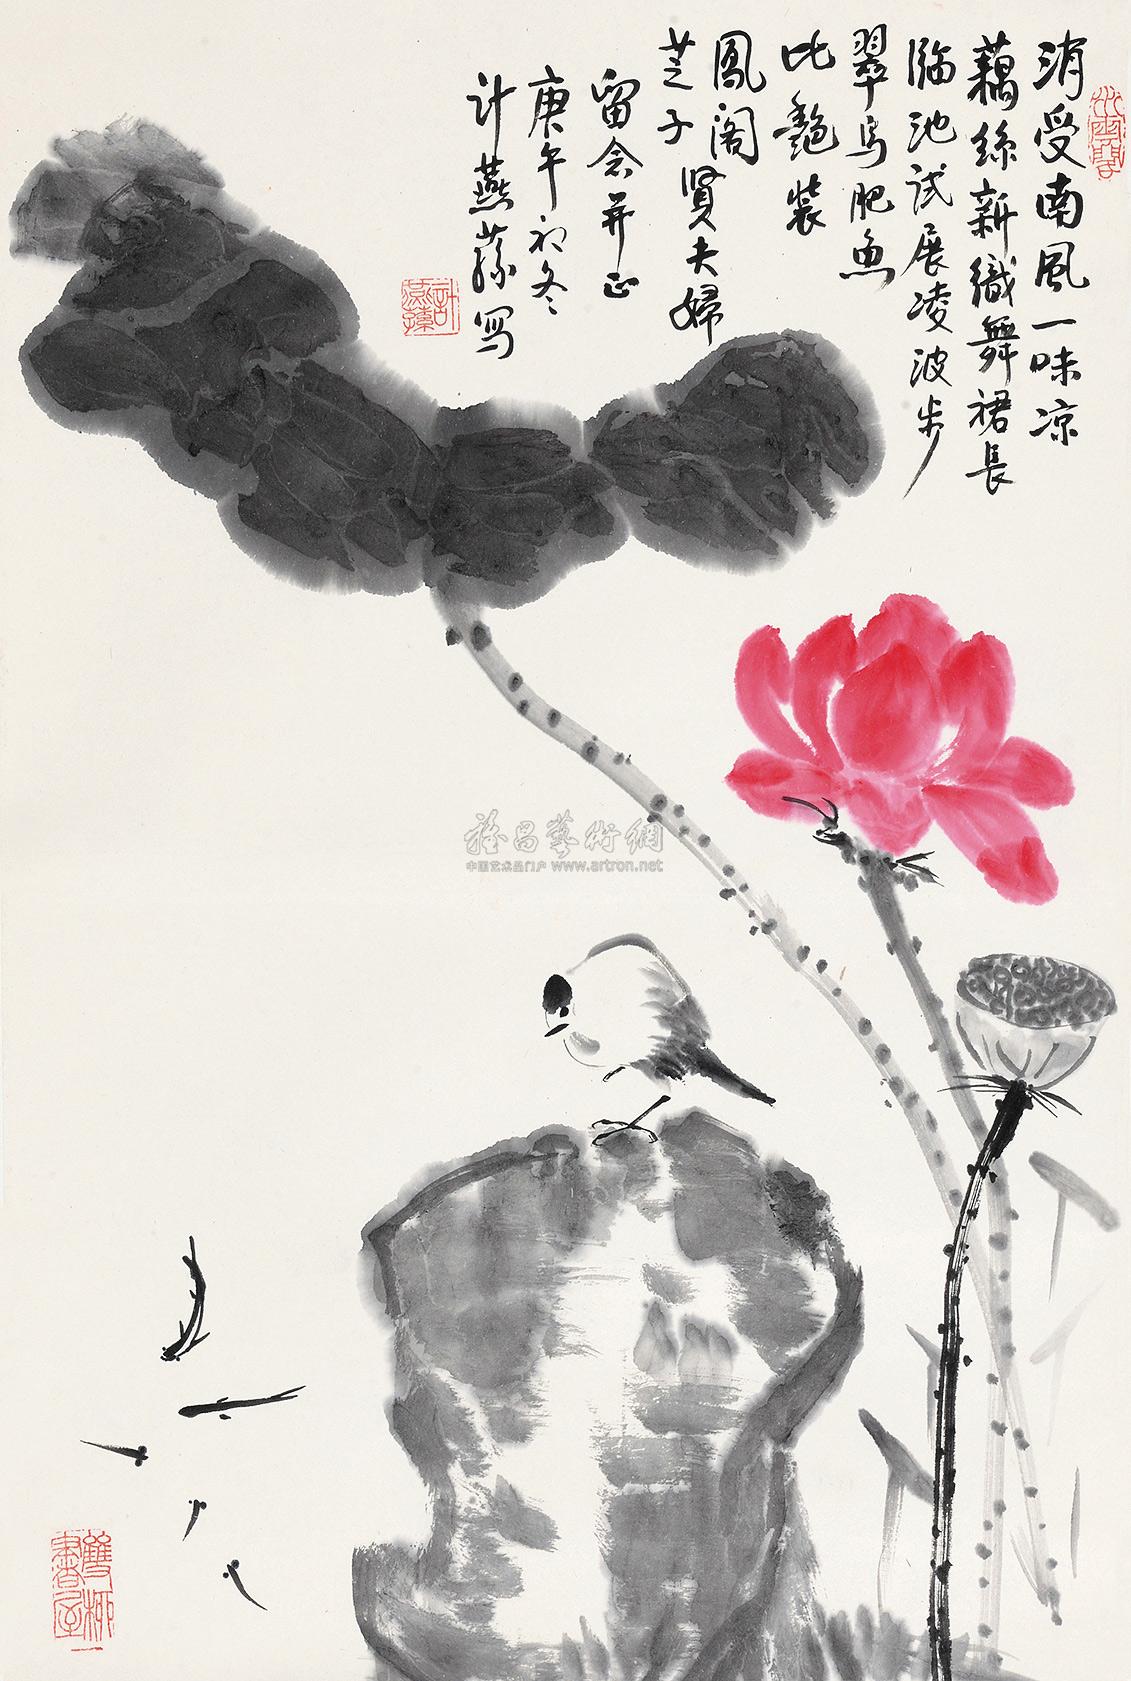 消受南風一味凉
藕絲新織舞裙長
臨池試展凌波步
翠鳥肥魚
比艶裝
鳳閣
芝子賢夫婦
留念并正
庚午初冬
計燕蓀寫
計燕蓀
雙柳書屋
雅昌藝術網
中国艺术品门户 www.artron.net